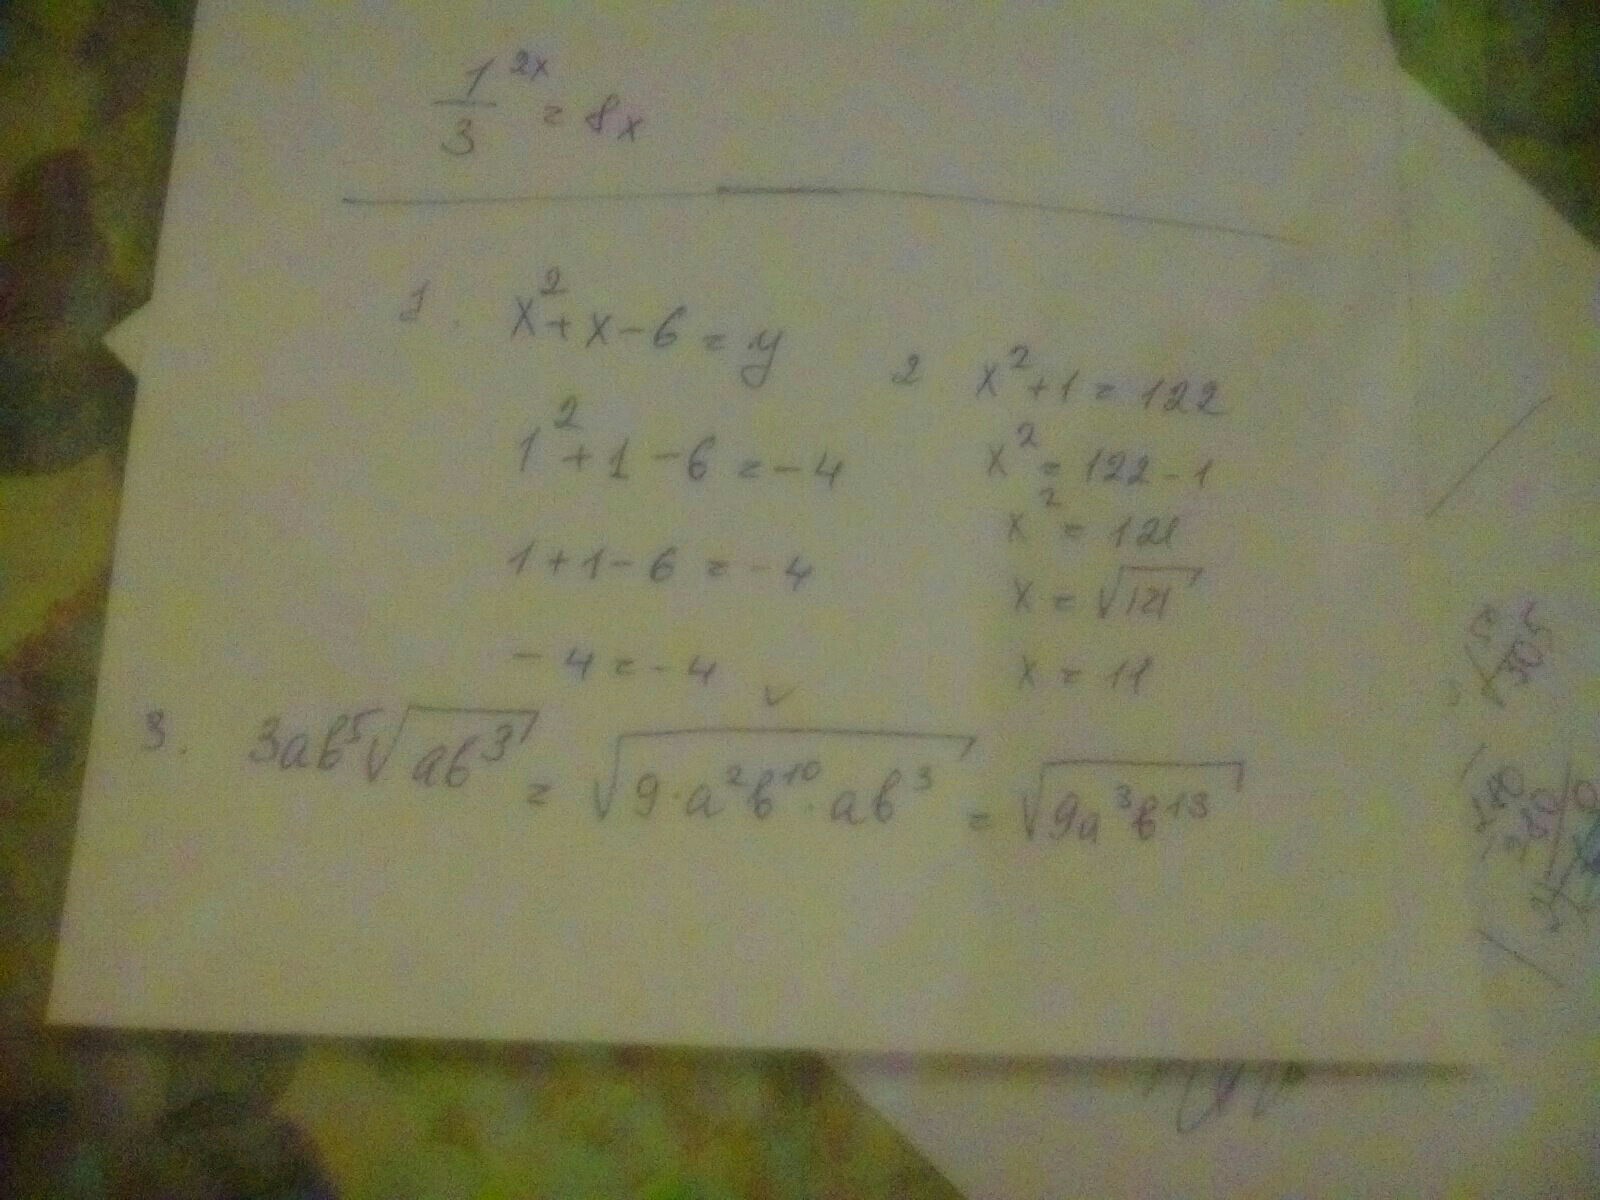 1^{2x}/3 = 8x
1. x² + x - 6 = y
1² + 1 - 6 = -4
1 + 1 - 6 = -4
-4 = -4
2 x² + 1 = 122
x² = 122 - 1
x² = 121
x = √121
x = 11
3. 3ab⁵√(ab³) = √(9·a²b¹⁰·ab³) = √(9a³b¹³)